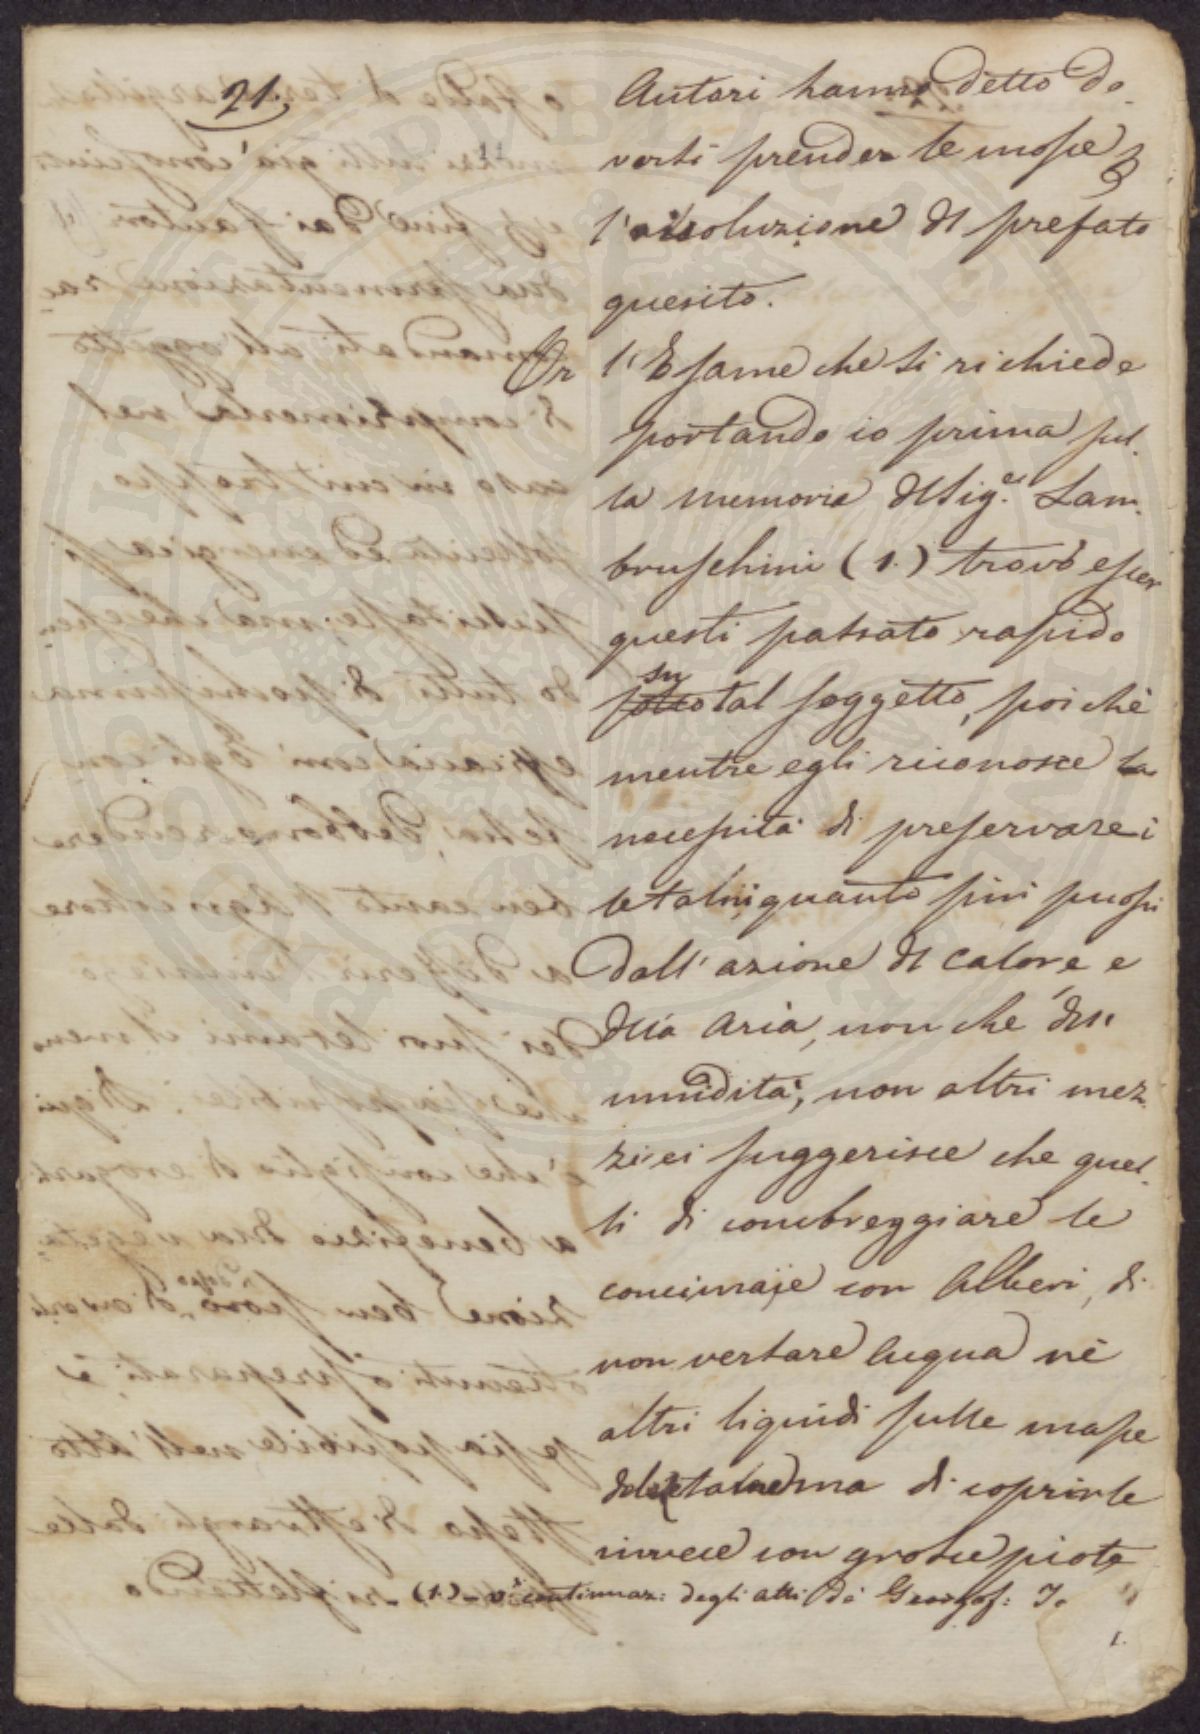 21.
Autori hanno detto do-
versi prender le mosse p
l'risoluzione dl prefato
quesito.
Or l'Esame che si richiede
portando io prima sul-
la memoria dl Sig.e Lam-
bruschini (1.) trovo esser
questi passato rapido
su
sotto tal soggetto, poichè
mentre egli riconosce la
necessità di preservare i
letami quanto più puossi
dall'azione dl calore e
dlla aria, non che dll'
umidità, non altri mez-
zi ci suggerisce che quel-
li di ombreggiare le
concimaje con Alberi, di
non versare acqua nè
altri liquidi sulle masse
di letame ma di coprirle
invece con grosse piote
(1.) - v.i continuaz: degli atti de' Georgof: T.
1.